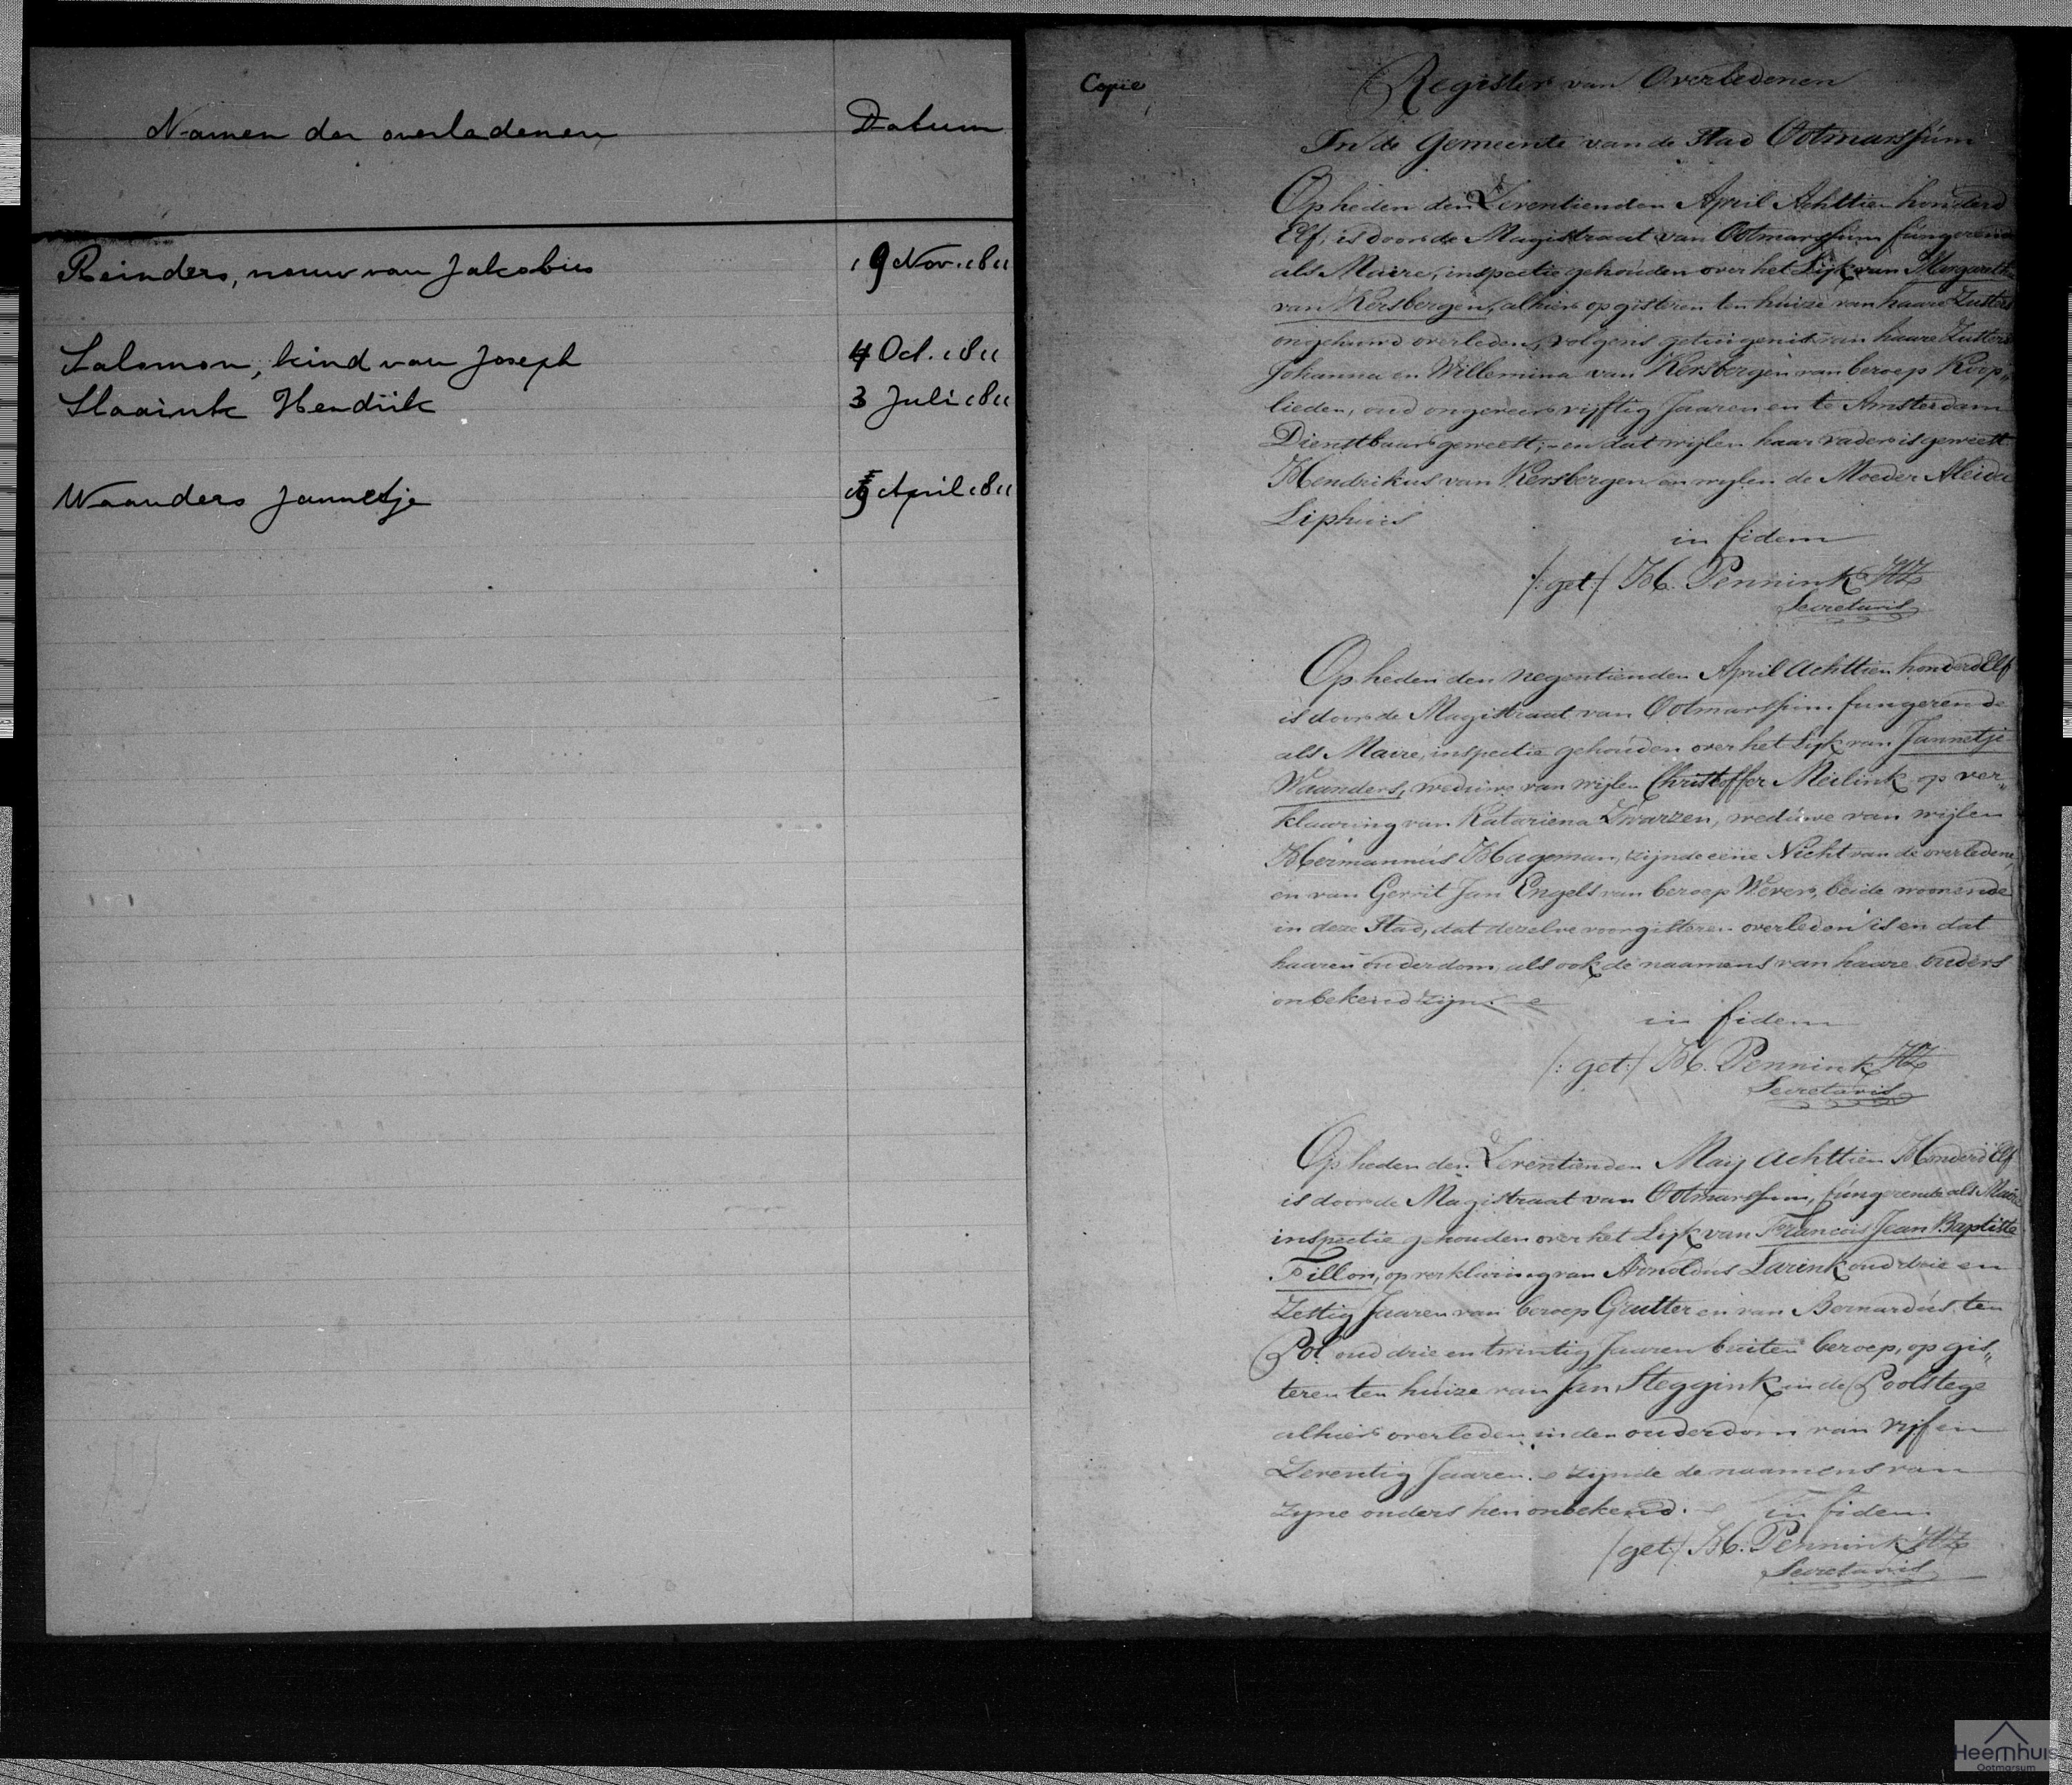 Namen der overledenen Datum
Reinders, vrouw van Jakobus 19 Nov. 1811
Salomon, kind van Joseph 4 Oct. 1811
Slaaink Hendrik 3 Juli 1811
Waanders Jannetje April 1811
Copie
Register van Overledenen
In de Gemeente van de Stad Ootmarssum
Op heden den Zeventienden April Achttien honderd
Elf, is door de Magistraat van Ootmarssum fungerende
als Maire, inspectie gehouden over het Lijk van Margaretha
van Kersbergen, alhier op gisteren ten huize van haare Zusters
ongehuwd overleden, volgens getuigenis van haare Zusters
Johanna en Willemina van Kersbergen van beroep Koop„
lieden, oud ongeveer vijftig Jaaren en te Amsterdam
Dienstbaar geweest; en dat wijlen haar vader is geweest
Hendrikus van Kersbergen en wylen de Moeder Aleida
Liphuis
in fidem
/: get :/ H. Pennink HZ
Secretaris
Op heden den negentienden April Achttien honderd Elf
is door de Magistraat van Ootmarssum fungerende
als Maire, inspectie gehouden over het Lijk van Jannetje
Waanders, weduwe van wijlen Christoffer Meilink op ver„
klaaring van Katariena Zwarzen, weduwe van wijlen
Hermannus Hageman, zijnde eene Nicht van de overledene,
en van Gerrit Jan Engels van beroep Wever, beide woonende
in deze Stad, dat dezelve voorgisteren overleden is en dat
haaren ouderdom als ook de naamens van haare ouders
onbekend zijn.
in fidem
/: get :/ H. Pennink HZ
Secretaris
Op heden den Zeventienden Maij Achttien Honderd Elf
is door de Magistraat van Ootmarssum, fungerende als Maire
inspectie gehouden over het Lijk van Francois Jean Baptiste
Fillon, op verklaring van Arnoldus Larink oud drie en
Zestig Jaaren van beroep Grutter en van Bernardus ten
Pol oud drie en twintig Jaaren buiten beroep, op gis„
teren ten huize van Jan Steggink in de Poolstege
alhier overleden in den ouderdom van vijf en
Zeventig Jaaren. zijnde de naamens van
zyne ouders hen onbekend. in fidem
/get:/ H. Pennink HZ
Secretaris
Heemhuis
Ootmarsum